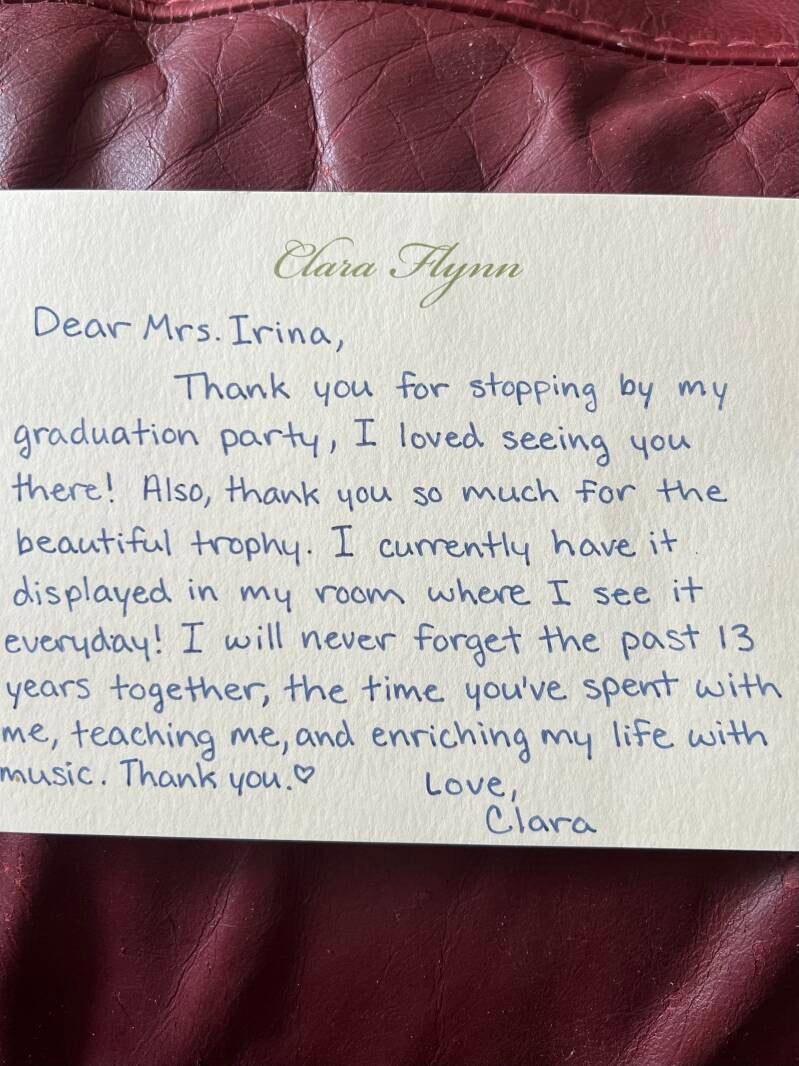 Clara Flynn
Dear Mrs. Irina,
Thank you for stopping by my
graduation party, I loved seeing you
there! Also, thank you so much for the
beautiful trophy. I currently have it
displayed in my room where I see it
everyday! I will never forget the past 13
years together, the time you've spent with
me, teaching me, and enriching my life with
music. Thank you.♡ Love,
Clara